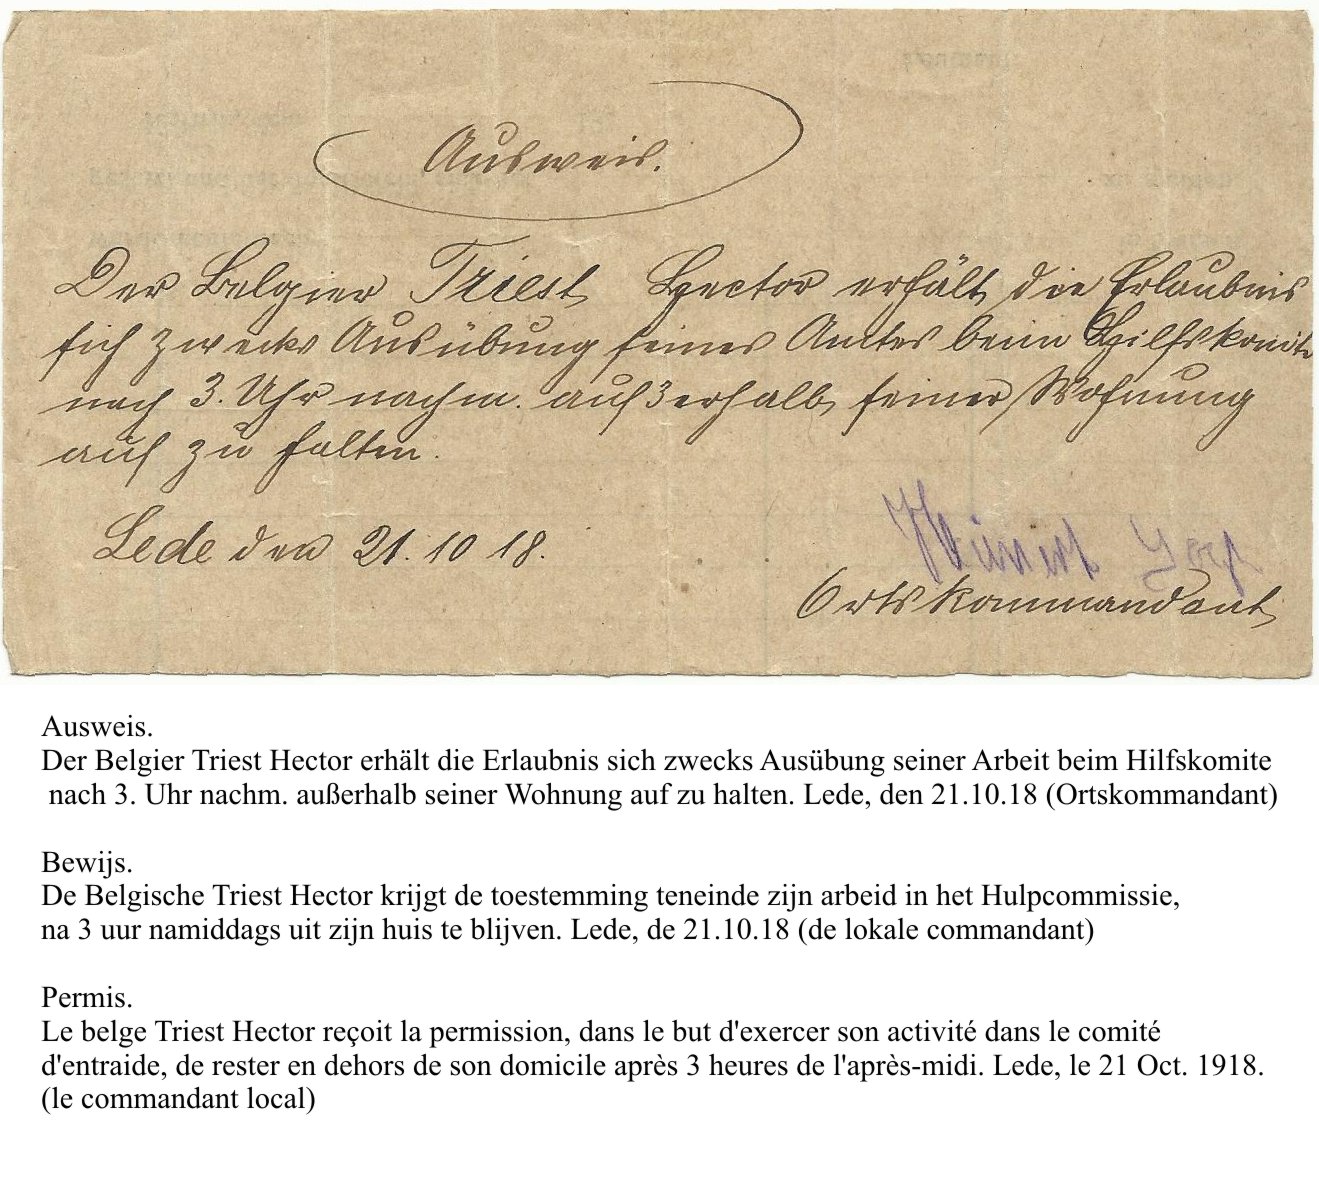 Ausweis.
Der Belgier Triest Hector erhält die Erlaubnis
sich zwecks Ausübung seines Amtes beim Hilfskomite
nach 3. Uhr nachm. außerhalb seiner Wohnung
auf zu halten.
Lede den 21. 10 18.
Ortskommandant
Ausweis.
Der Belgier Triest Hector erhält die Erlaubnis sich zwecks Ausübung seiner Arbeit beim Hilfskomite
nach 3. Uhr nachm. außerhalb seiner Wohnung auf zu halten. Lede, den 21.10.18 (Ortskommandant)
Bewijs.
De Belgische Triest Hector krijgt de toestemming teneinde zijn arbeid in het Hulpcommissie,
na 3 uur namiddags uit zijn huis te blijven. Lede, de 21.10.18 (de lokale commandant)
Permis.
Le belge Triest Hector reçoit la permission, dans le but d'exercer son activité dans le comité
d'entraide, de rester en dehors de son domicile après 3 heures de l'après-midi. Lede, le 21 Oct. 1918.
(le commandant local)